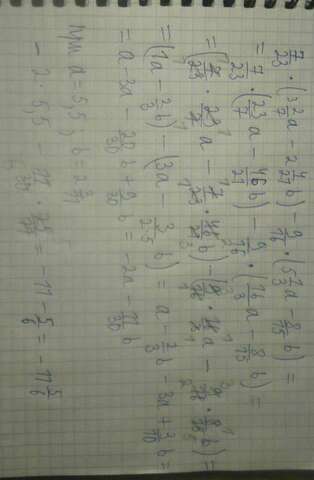 7/23 · (3 2/7 a - 2 4/21 b) - 9/16 · (5 1/3 a - 8/15 b) =
= 7/23 · (23/7 a - 46/21 b) - 9/16 · (16/3 a - 8/15 b) =
= (7/23 · 23/7 a - 7/23 · 46/21 b) - (9/16 · 16/3 a - 9/16 · 8/15 b) =
= (1a - 2/3 b) - (3a - 3/2·5 b) = a - 2/3 b - 3a + 3/10 b =
= a - 3a - 20/30 b + 9/30 b = -2a - 11/30 b
При a = 5,5; b = 2 3/11
- 2 · 5,5 - 11/30 · 25/11 = - 11 - 5/6 = - 11 5/6